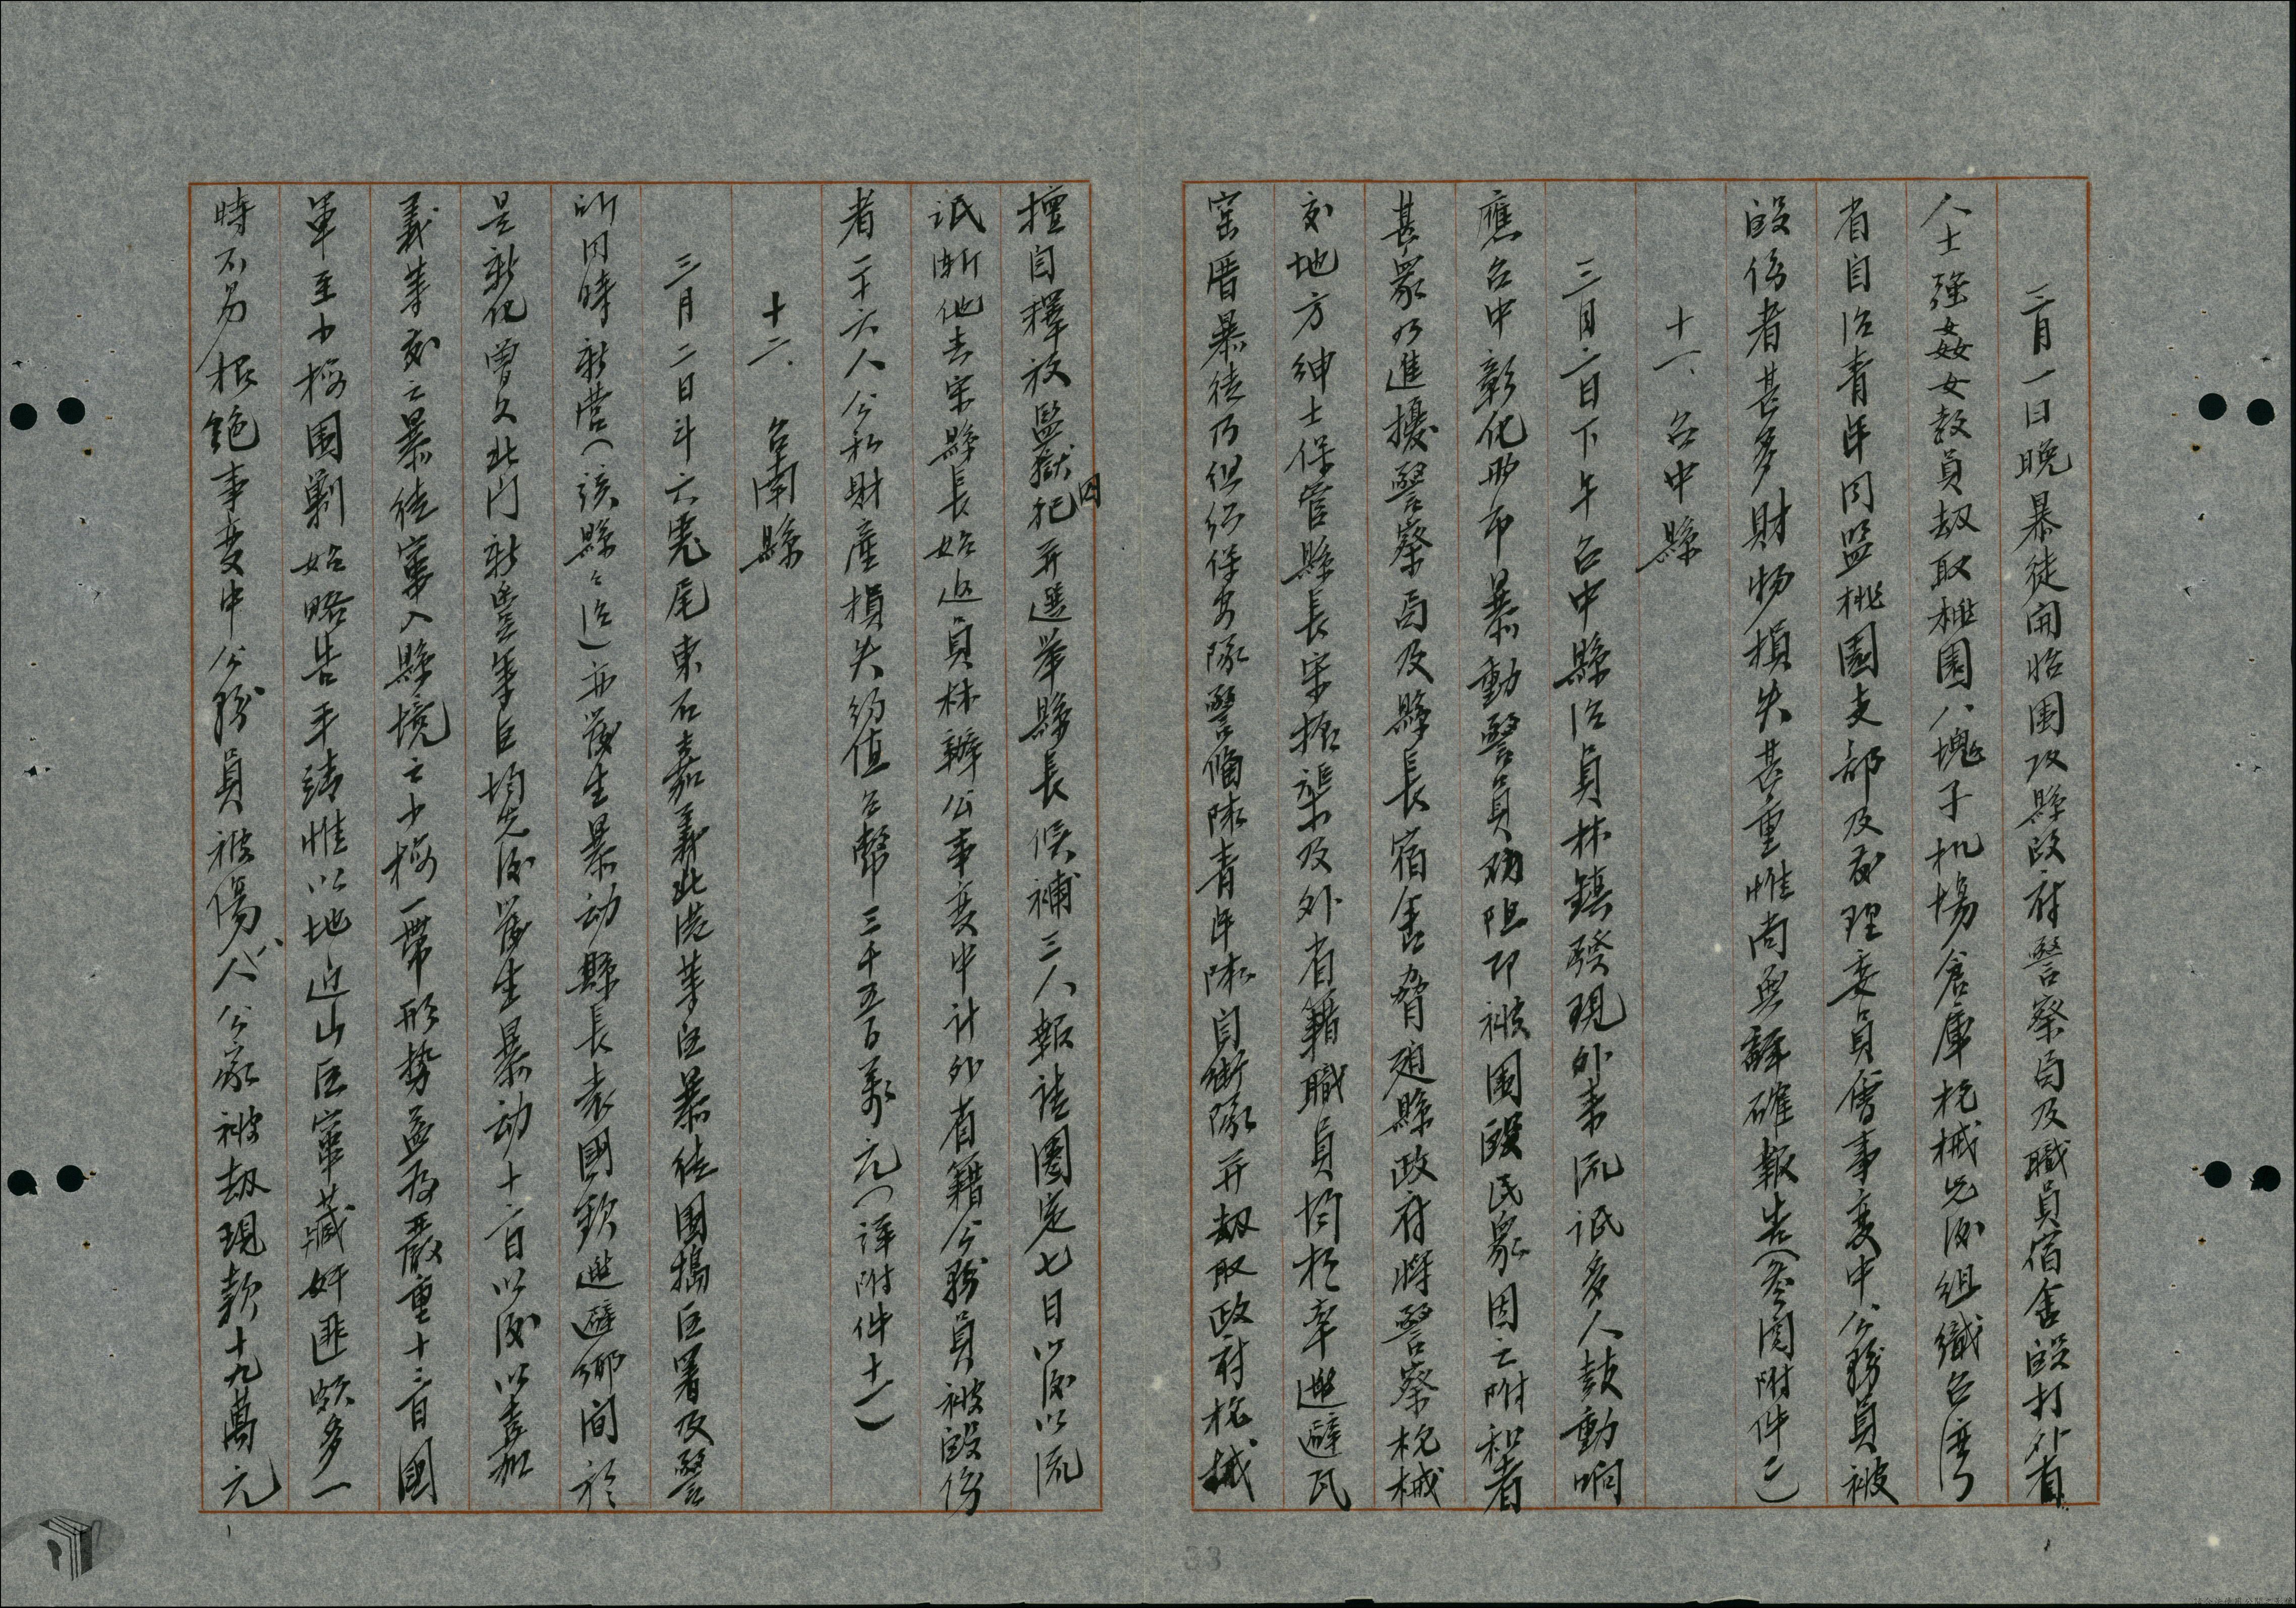 三月一日晚暴徒開始圍攻縣政府警察局及職員宿舍毆打外省
人士強姦女教員劫取桃園八塊子机場倉庫枪械先後組織台湾
省自治青年同盟桃園支部及處理委員會事變中公務員被
毆傷者甚多財物損失甚重惟尚無詳確報告(參閱附件二)
十一、台中縣
三月二日下午台中縣治員林鎮發現外來流氓多人鼓動响
應台中彰化兩市暴動警員勸阻即被围毆民眾因之附和者
甚眾乃進擾警察局及縣長宿舍脅迫縣政府將警察枪械
交地方紳士保管縣長宋振榘及外省籍職員均於幸避瓦
窑厝暴徒乃组织保安隊警備隊青年隊自衛隊并劫取政府枪械
擅自釋放監獄囚犯并選舉縣長候補三人報請圈定七日以後以流
氓漸他去宋縣長始返員林辦公事變中計外省籍公務員被毆伤
者二十六人公私財產損失約值台幣三千五百萬元(詳附件十一)
十二、台南縣
三月二日斗六虎尾東石嘉義北港等區暴徒圍搗區署及警
所同時新營(該縣縣治)亦發生暴动縣長袁國欽避鄉間於
是新化曾文北门新豐等區均先後發生暴动十一日以後以嘉
義等處之暴徒竄入縣境之小梅一帶形势益为嚴重十三日國
軍至小梅围剿始略告平靖惟以地近山區竄藏奸匪頗多一
時不易根絕事變中公務員被傷八人公家被劫現款十九萬元
33